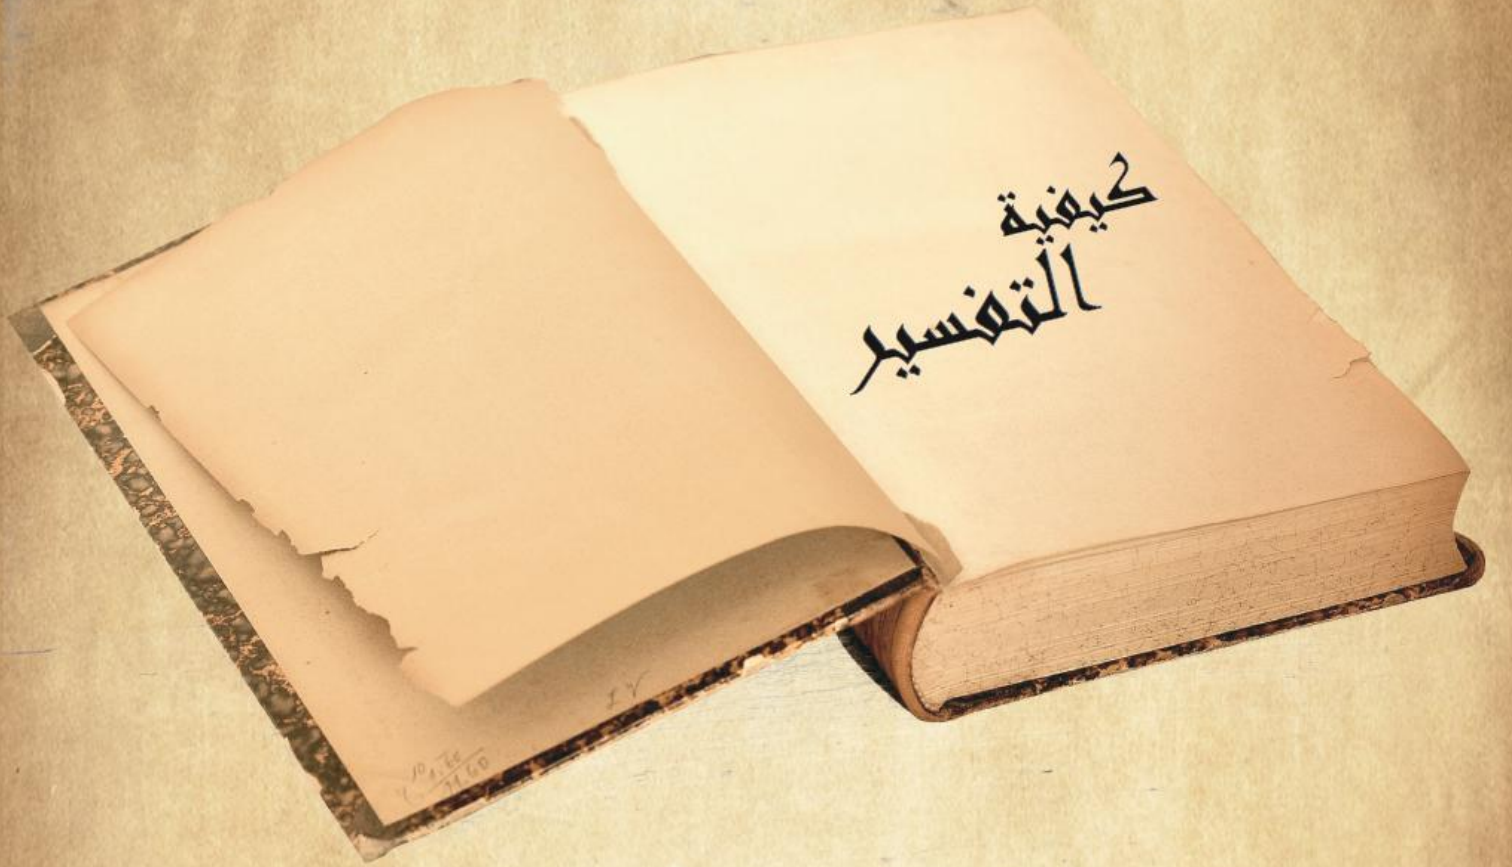 كيفية
التفسير